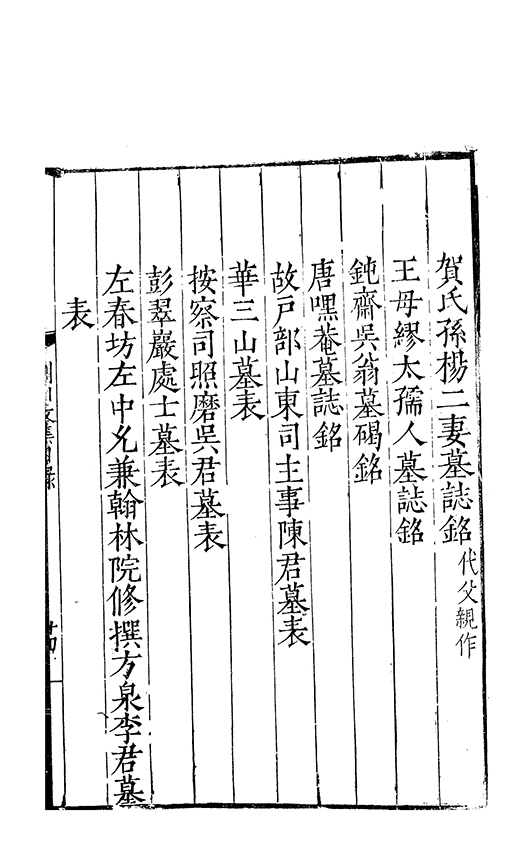 賀氏孫楊二妻墓誌銘代父親作
王母繆太孺人墓誌銘
鈍齋吳翁墓碣銘
唐嘿菴墓誌銘
故戶部山東司主事陳君墓表
華三山墓表
按察司照磨吳君墓表
彭翠巖處士墓表
左春坊左中允兼翰林院修撰方泉李君墓
表
荊川文集目錄